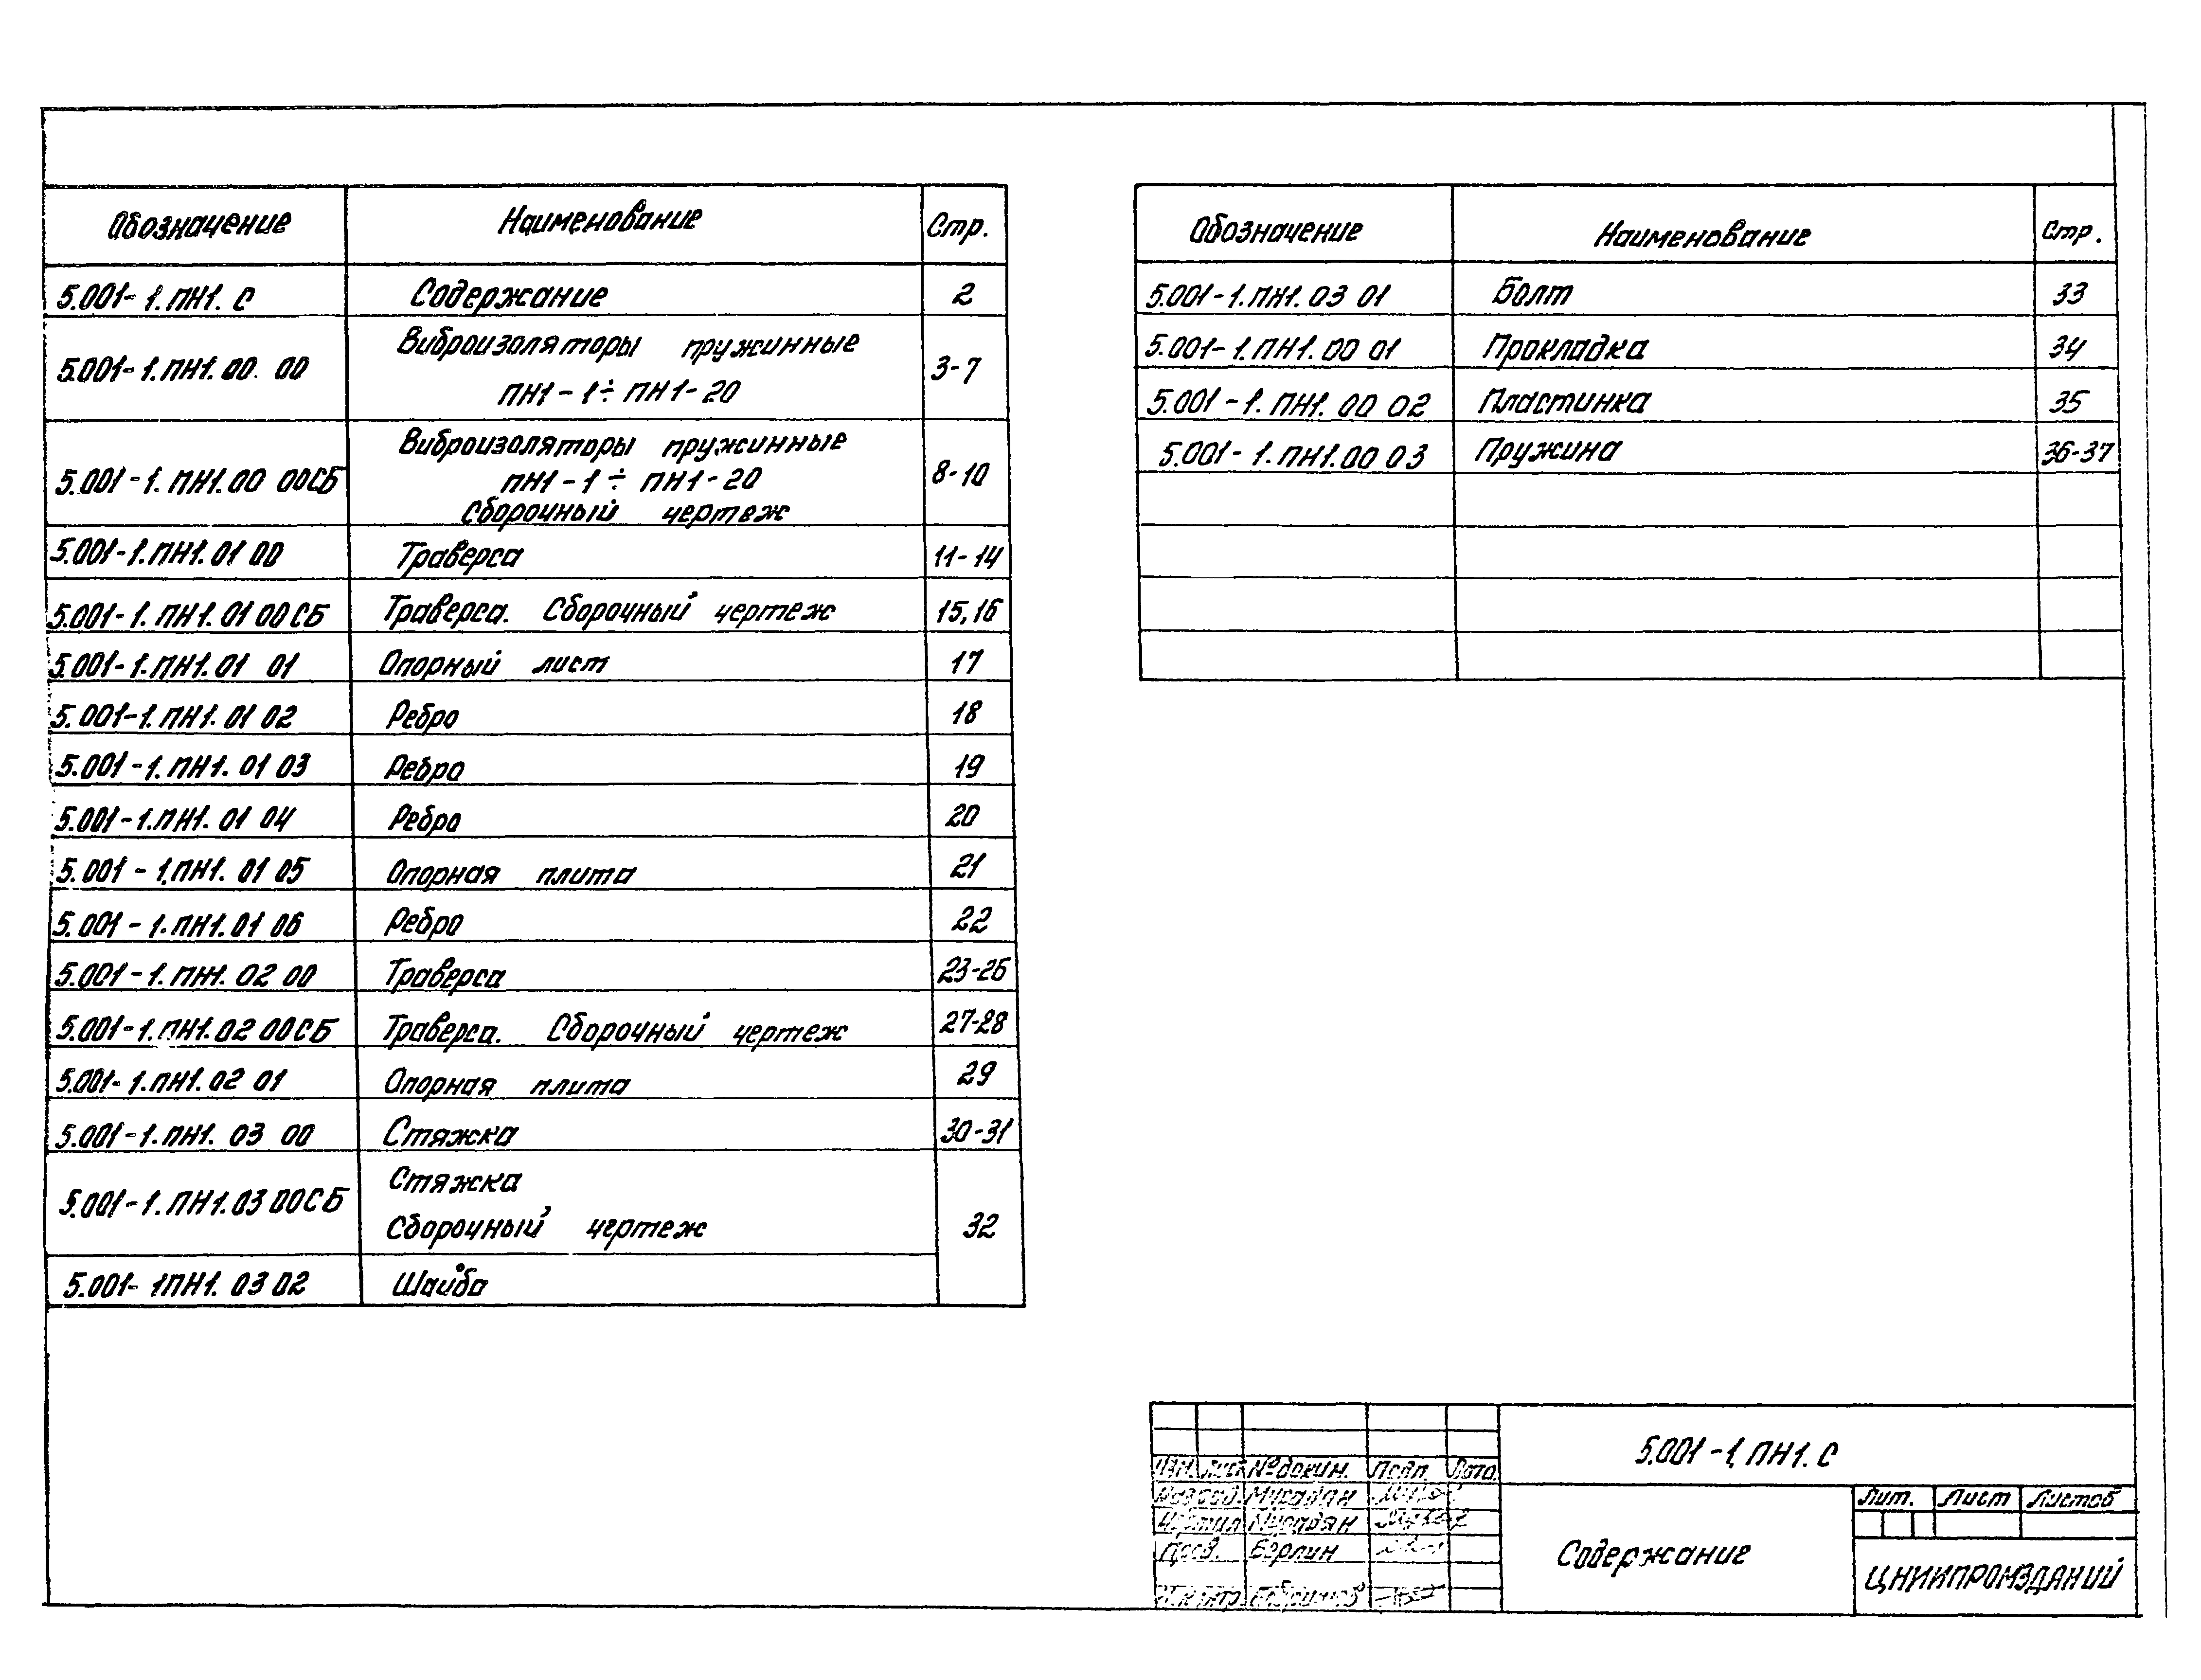 Обозначение Наименование Стр.
5.001-1.ПН1. С Содержание 2
5.001-1.ПН1.00 00 Виброизоляторы пружинные
ПН1-1÷ПН1-20 3-7
5.001-1.ПН1.00 00СБ Виброизоляторы пружинные
ПН1-1÷ПН1-20
Сборочный чертеж 8-10
5.001-1.ПН1.01 00 Траверса 11-14
5.001-1.ПН1.01 00СБ Траверса. Сборочный чертеж 15,16
5.001-1.ПН1.01 01 Опорный лист 17
5.001-1.ПН1.01 02 Ребро 18
5.001-1.ПН1.01 03 Ребро 19
5.001-1.ПН1.01 04 Ребро 20
5.001-1.ПН1.01 05 Опорная плита 21
5.001-1.ПН1.01 06 Ребро 22
5.001-1.ПН1.02 00 Траверса 23-26
5.001-1.ПН1.02 00СБ Траверса. Сборочный чертеж 27-28
5.001-1.ПН1.02 01 Опорная плита 29
5.001-1.ПН1.03 00 Стяжка 30-31
5.001-1.ПН1.03 00СБ Стяжка
Сборочный чертеж 32
5.001-1ПН1.03 02 Шайба
Обозначение Наименование Стр.
5.001-1.ПН1.03 01 Болт 33
5.001-1.ПН1.00 01 Прокладка 34
5.001-1.ПН1.00 02 Пластинка 35
5.001-1.ПН1.00 03 Пружина 36-37
5.001-1.ПН1.С
Изм. Лист №докум. Подп. Дата
Разраб. Мурадян
Мурадян
Пров. Берлин
Н.контр.
Содержание
Лит. Лист Листов
ЦНИИПРОМЗДАНИЙ